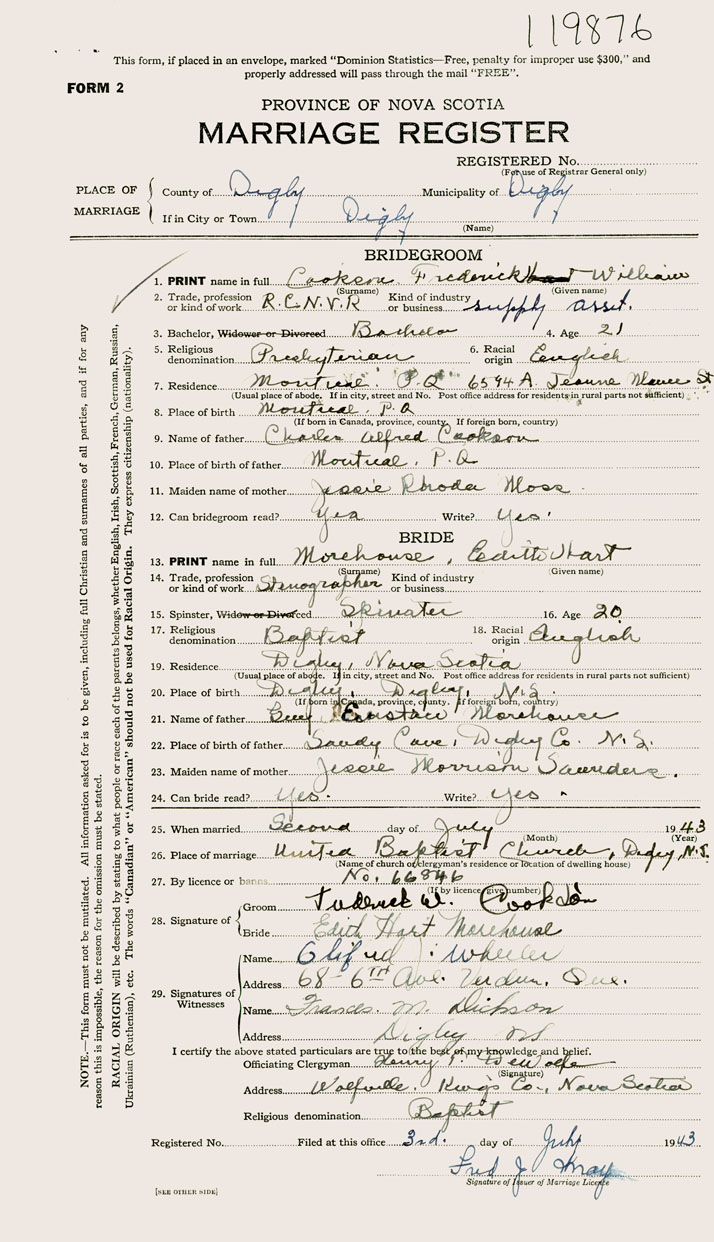 119876
This form, if placed in an envelope, marked "Dominion Statistics—Free, penalty for improper use $300," and
properly addressed will pass through the mail "FREE".
FORM 2
PROVINCE OF NOVA SCOTIA
MARRIAGE REGISTER
REGISTERED No.
(For use of Registrar General only)
PLACE OF MARRIAGE
County of Digby Municipality of Digby
If in City or Town Digby
(Name)
BRIDEGROOM
1. PRINT name in full Cookson Frederick William
(Surname) (Given name)
2. Trade, profession or kind of work R.C.N.V.R Kind of industry or business supply asst.
3. Bachelor, Widower or Divorced Bachelor 4. Age 21
5. Religious denomination Presbyterian 6. Racial origin English
7. Residence Montreal. P.Q 6594A. Jeanne Mance St
(Usual place of abode. If in city, street and No. Post office address for residents in rural parts not sufficient)
8. Place of birth Montreal. P.Q
(If born in Canada, province, county. If foreign born, country)
9. Name of father Charles Alfred Cookson
10. Place of birth of father Montreal. P.Q
11. Maiden name of mother Jessie Rhoda Moss
12. Can bridegroom read? Yea Write? Yes.
BRIDE
13. PRINT name in full Morehouse, Edith Hart
(Surname) (Given name)
14. Trade, profession or kind of work Stenographer Kind of industry or business
15. Spinster, Widow or Divorced Spinster 16. Age 20
17. Religious denomination Baptist 18. Racial origin English
19. Residence Digby, Nova Scotia
(Usual place of abode. If in city, street and No. Post office address for residents in rural parts not sufficient)
20. Place of birth Digby, Digby, N.S.
(If born in Canada, province, county. If foreign born, country)
21. Name of father Morehouse
22. Place of birth of father Sandy Cove, Digby Co. N.S.
23. Maiden name of mother Jessie Morrison Saunders.
24. Can bride read? Yes. Write? Yes.
25. When married Second day of July 1943
(Month) (Year)
26. Place of marriage United Baptist Church, Digby, N.S.
(Name of church or clergyman's residence or location of dwelling house)
27. By licence or banns No. 66846
(If by licence give number)
28. Signature of
Groom Frederick W. Cookson
Bride Edith Hart Morehouse
29. Signatures of Witnesses
Name Wheeler
Address 68-6TH Ave. Verdun, Que.
Name Frances. M. Dickson
Address Digby NS
I certify the above stated particulars are true to the best of my knowledge and belief.
Officiating Clergyman Henry T. DeWolfe
(Signature)
Address Wolfville, Kings Co., Nova Scotia
Religious denomination Baptist
Registered No. Filed at this office 3rd. day of July 1943
Fred J
Signature of Issuer of Marriage Licence
[SEE OTHER SIDE]
NOTE.—This form must not be mutilated. All information asked for is to be given, including full Christian and surnames of all parties, and if for any
reason this is impossible, the reason for the omission must be stated.
RACIAL ORIGIN will be described by stating to what people or race each of the parents belongs, whether English, Irish, Scottish, French, German, Russian,
Ukrainian (Ruthenian), etc. The words "Canadian" or "American" should not be used for Racial Origin. They express citizenship (nationality).